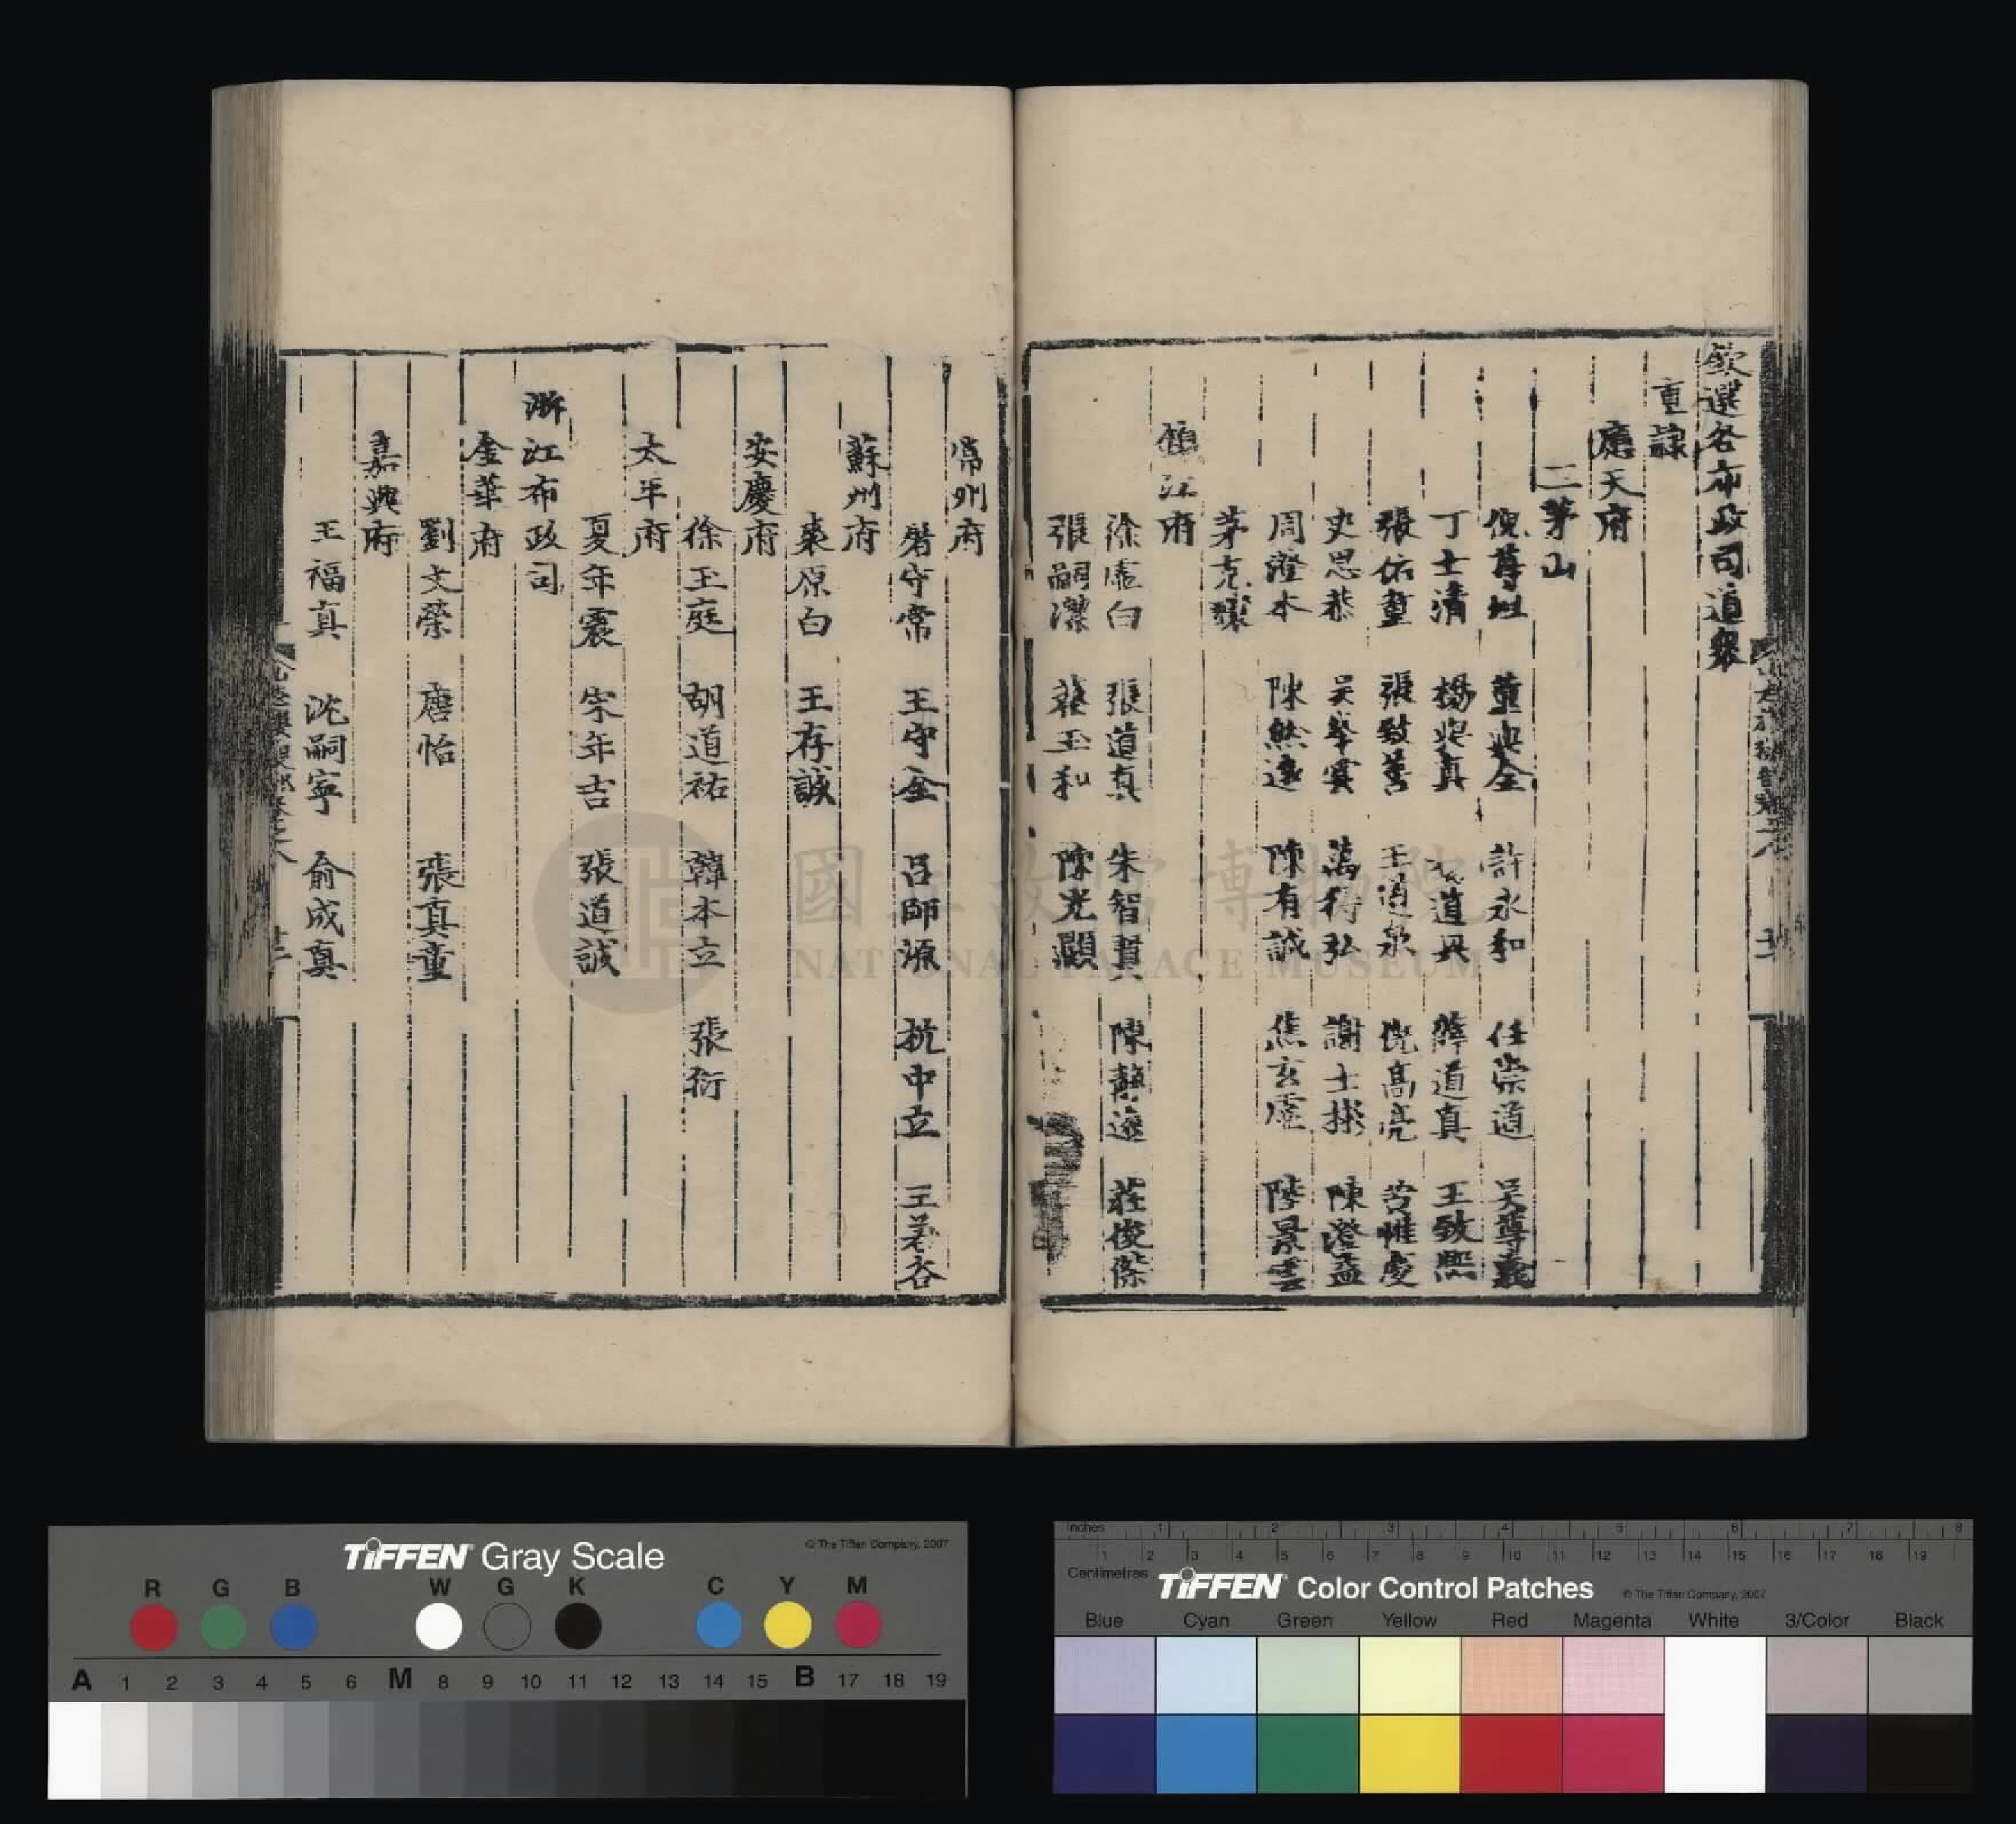 欽選各布政司道衆
直隸
應天府
三茅山
倪尊坦 董與全 許永和 任崇道 吳尊義
丁士清 楊與真 道具 薛道真 王致熙
張佑童 張致善 王道泉 倪高亮 苦惟虔
史思恭 吳泰寅 萬得弘 謝士彬 陳澄益
周澄本 陳然逵 陳有誠 焦玄虛 陸景雲
茅克謙
鎮江府
徐虛白 張道真 朱智賢 陳靜遠 莊俊傑
張嗣潔 蔡玉和 陳光顯
常州府
守常 王守全 呂師源 杭中立 王若谷
蘇州府
袁原白 王存誠
安慶府
徐玉庭 胡道祐 韓本立 張衍
太平府
夏年震 宋年吉 張道誠
浙江布政司
金華府
劉文榮 唐怡 張真童
嘉興府
王福真 沈嗣寧 俞成真
國立故宮博物院
NATIONAL PALACE MUSEUM
TIFFEN Gray Scale
© The Tiffen Company, 2007
R G B W G K C Y M
A 1 2 3 4 5 6 M 8 9 10 11 12 13 14 15 B 17 18 19
Inches 1 2 3 4 5 6 7 8
1 2 3 4 5 6 7 8 9 10 11 12 13 14 15 16 17 18 19
Centimetres
TIFFEN Color Control Patches
© The Tiffen Company, 2007
Blue Cyan Green Yellow Red Magenta White 3/Color Black